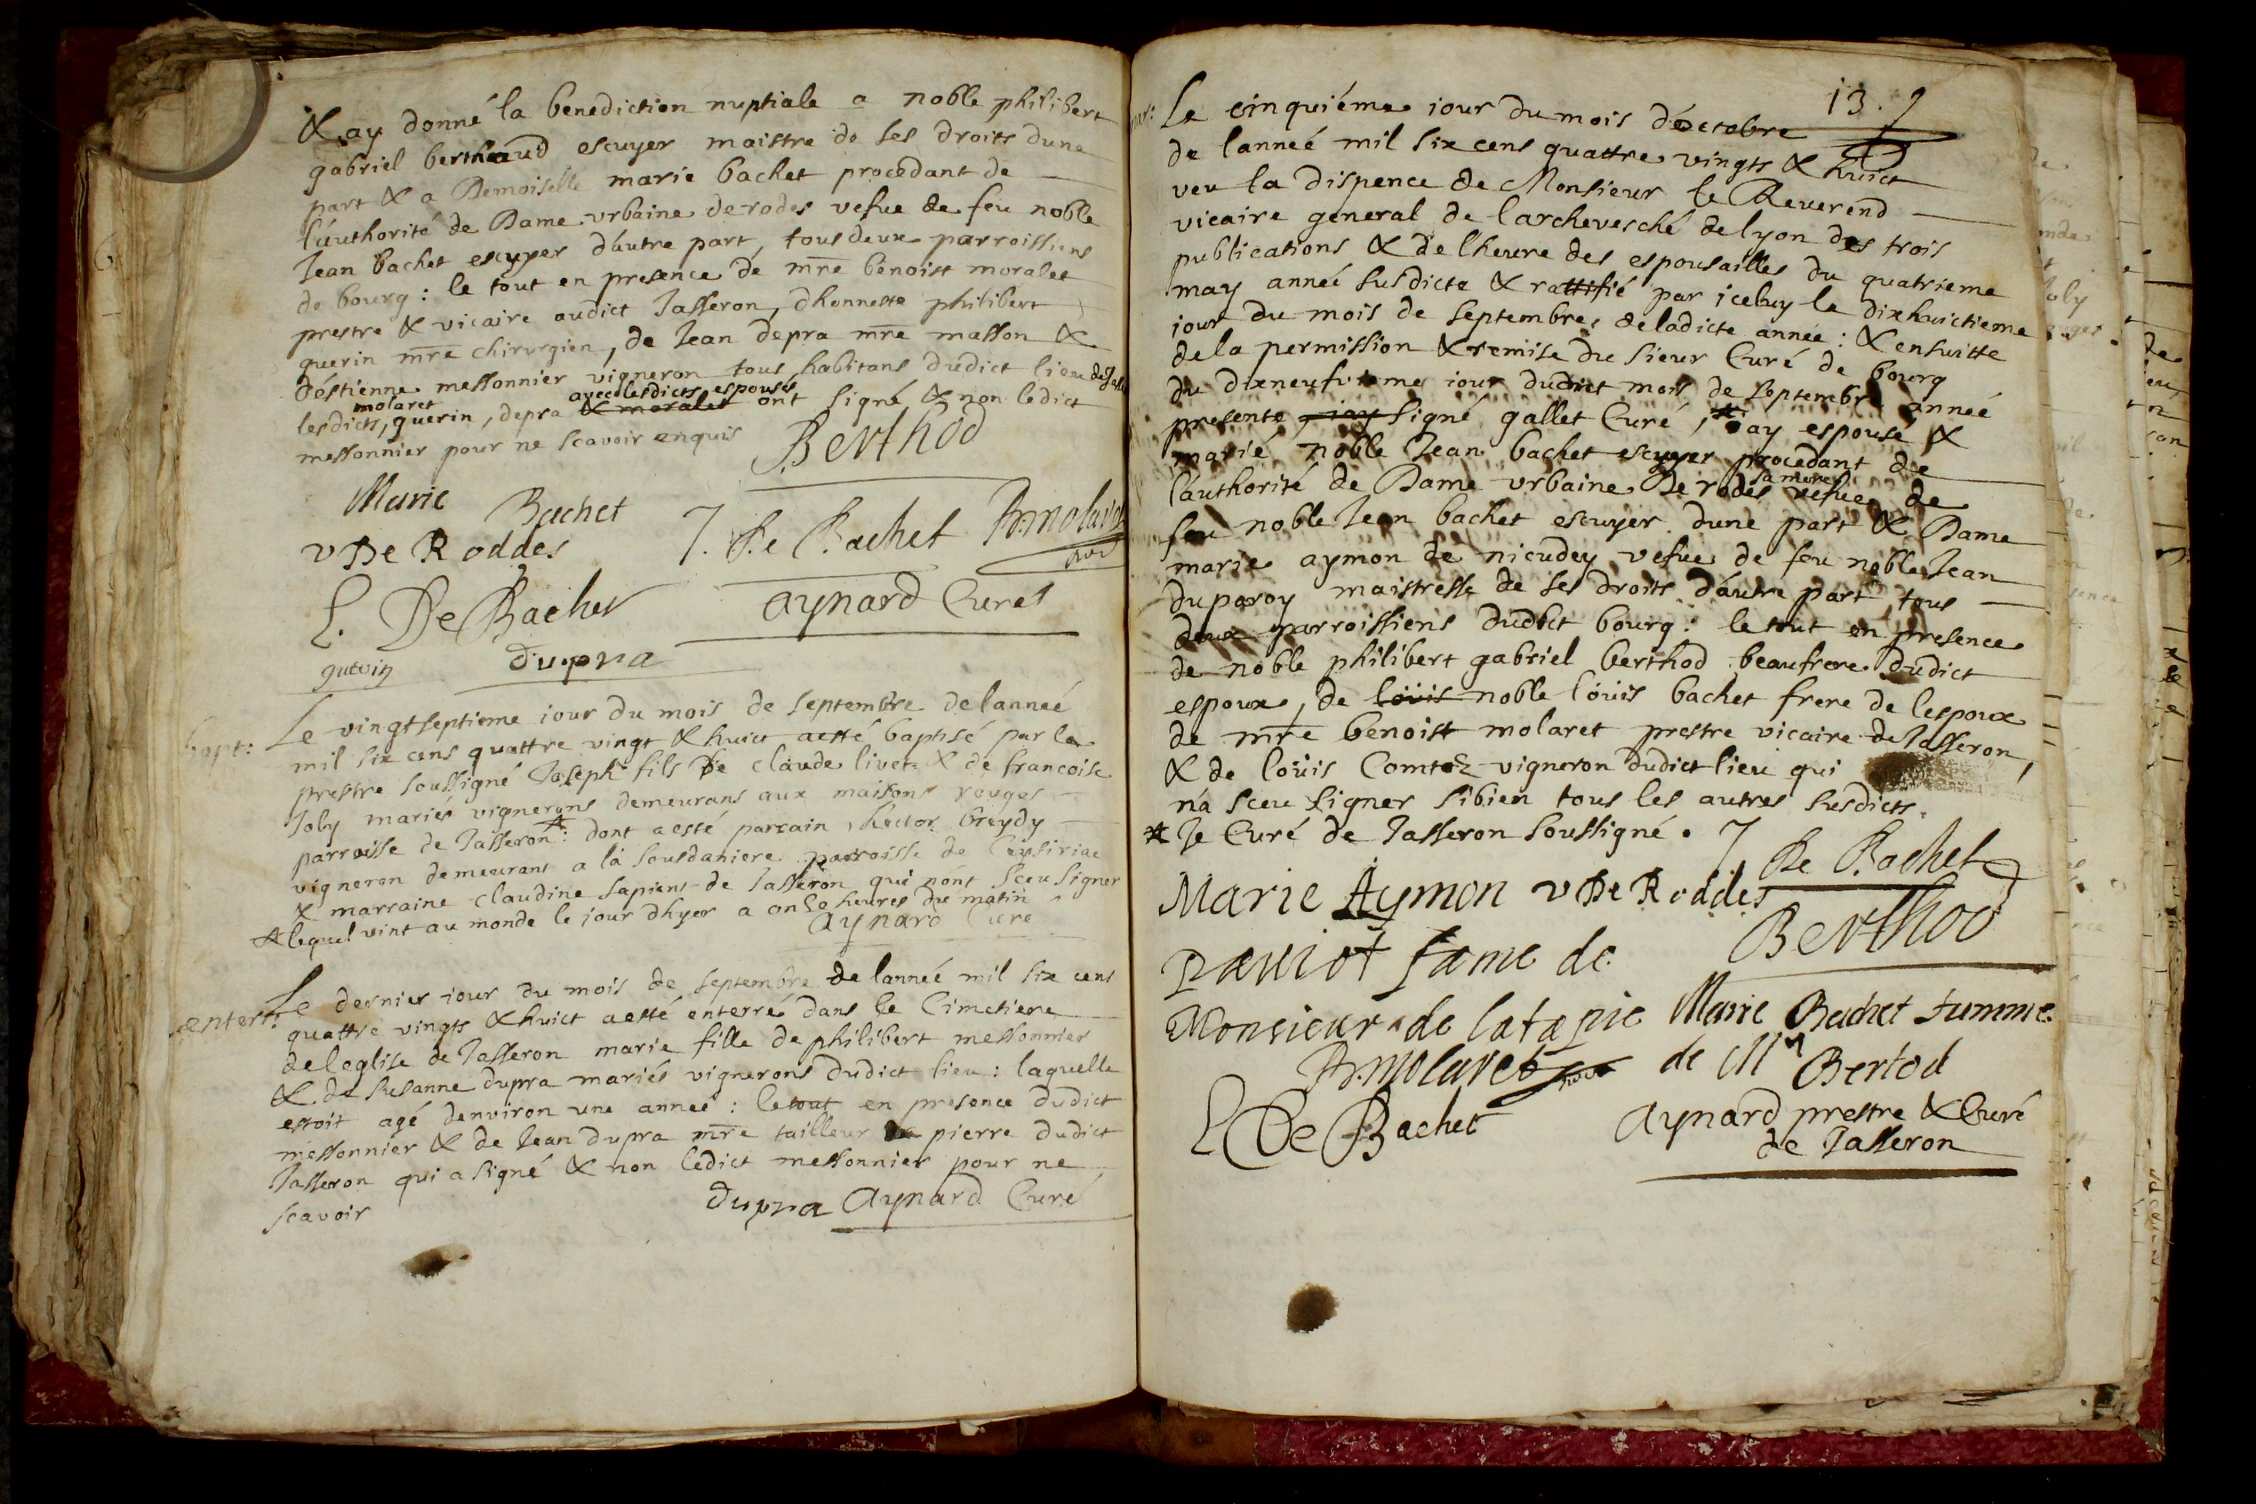 & ay donné la benediction nuptiale a noble philibert
gabriel berthaud escuyer maistre de ses droits dune
part & a Demoiselle marie bachet procedant de
l'authorité de Dame urbaine de rodes vefue de feu noble
Jean bachet escuyer d'autre part, tous deux parroissiens
de bourg : le tout en presence de mre benoist moralet
prestre & vicaire audict Jasseron, d'honneste philibert
guerin mre chirurgien, de Jean depra mre masson &
d'estienne messonnier vigneron tous habitans dudict lieu
molaret avec lesdicts espouses
lesdicts, guerin, depra & moralet ont signé & non ledict
messonnier pour ne scavoir enquis
Berthod
Marie Bachet
J. De Bachet
B. molaret
vic
v De Roddes
L. De Bachet
aynard Curé
guerin
dupra
bapt:
Le vingtseptieme iour du mois de septembre de lanneé
mil six cens quattre vingt & huict a esté baptisé par le
prestre soussigné Joseph fils de claude livet & de francoise
Joly mariés vignerons demeurans aux maisons rouges
parroisse de Jasseron : dont a esté parrain hector breydy
vigneron demeurant a la sousdaniere parroisse de Ceysiriac
& marraine claudine sapient de Jasseron qui nont sceu signer
lequel vint au monde le jour dhyer a onze heures du matin
aynard Curé
enterr:
Le dernier iour du mois de septembre de lanneé mil six cens
quattre vingts & huict a esté enterré dans le Cimetiere
de leglise de Jasseron marie fille de philibert messonnier
& de susanne dupra mariés vignerons dudict lieu : laquelle
estoit agé denviron une anneé : le tout en presence dudict
messonnier & de Jean dupra mre tailleur de pierre dudict
Jasseron qui a signé & non ledict messonnier pour ne
scavoir
dupra aynard Curé
13.
mar:
Le cinquiéme iour du mois d'octobre
de lanneé mil six cens quattre vingts & huict
veu la dispence de Monsieur le Reuerend
vicaire general de l'archevesché de lyon des trois
publications & de l'heure des espousailles du quatrieme
may anneé susdicte & rattifié par iceluy le dixhuictieme
jour du mois de septembre de ladicte année : & ensuitte
de la permission & remise du sieur Curé de bourg
du dixneufvieme iour dudict mois de septembre anneé
presente , jay signé gallet Curé , jay espousé &
marié noble Jean bachet escuyer procedant de
sa mere
l'authorité de Dame urbaine De rodes vefue de
feu noble Jean bachet escuyer dune part & Dame
marie aymon de nicudey vefue de feu noble Jean
duparoy maistresse de ses droits d'autre part tous
deux parroissiens dudict bourg : le tout en presence
de noble philibert gabriel berthod beaufrere dudict
espoux, de louis noble loüis bachet frere de lespoux
de mre benoist molaret prestre vicaire de Jasseron,
& de loüis Comtez vigneron dudict lieu qui
na sceu signer sibien tous les autres susdicts.
Je Curé de Jasseron soussigné .
J De Bachet
Marie Aymon v De Roddes
Berthod
Pauiot fame de
Monsieur de latapie
Marie Bachet fumme
de Mr Bertod
B. molaret vic
L De Bachet
aynard prestre & Curé
de Jasseron